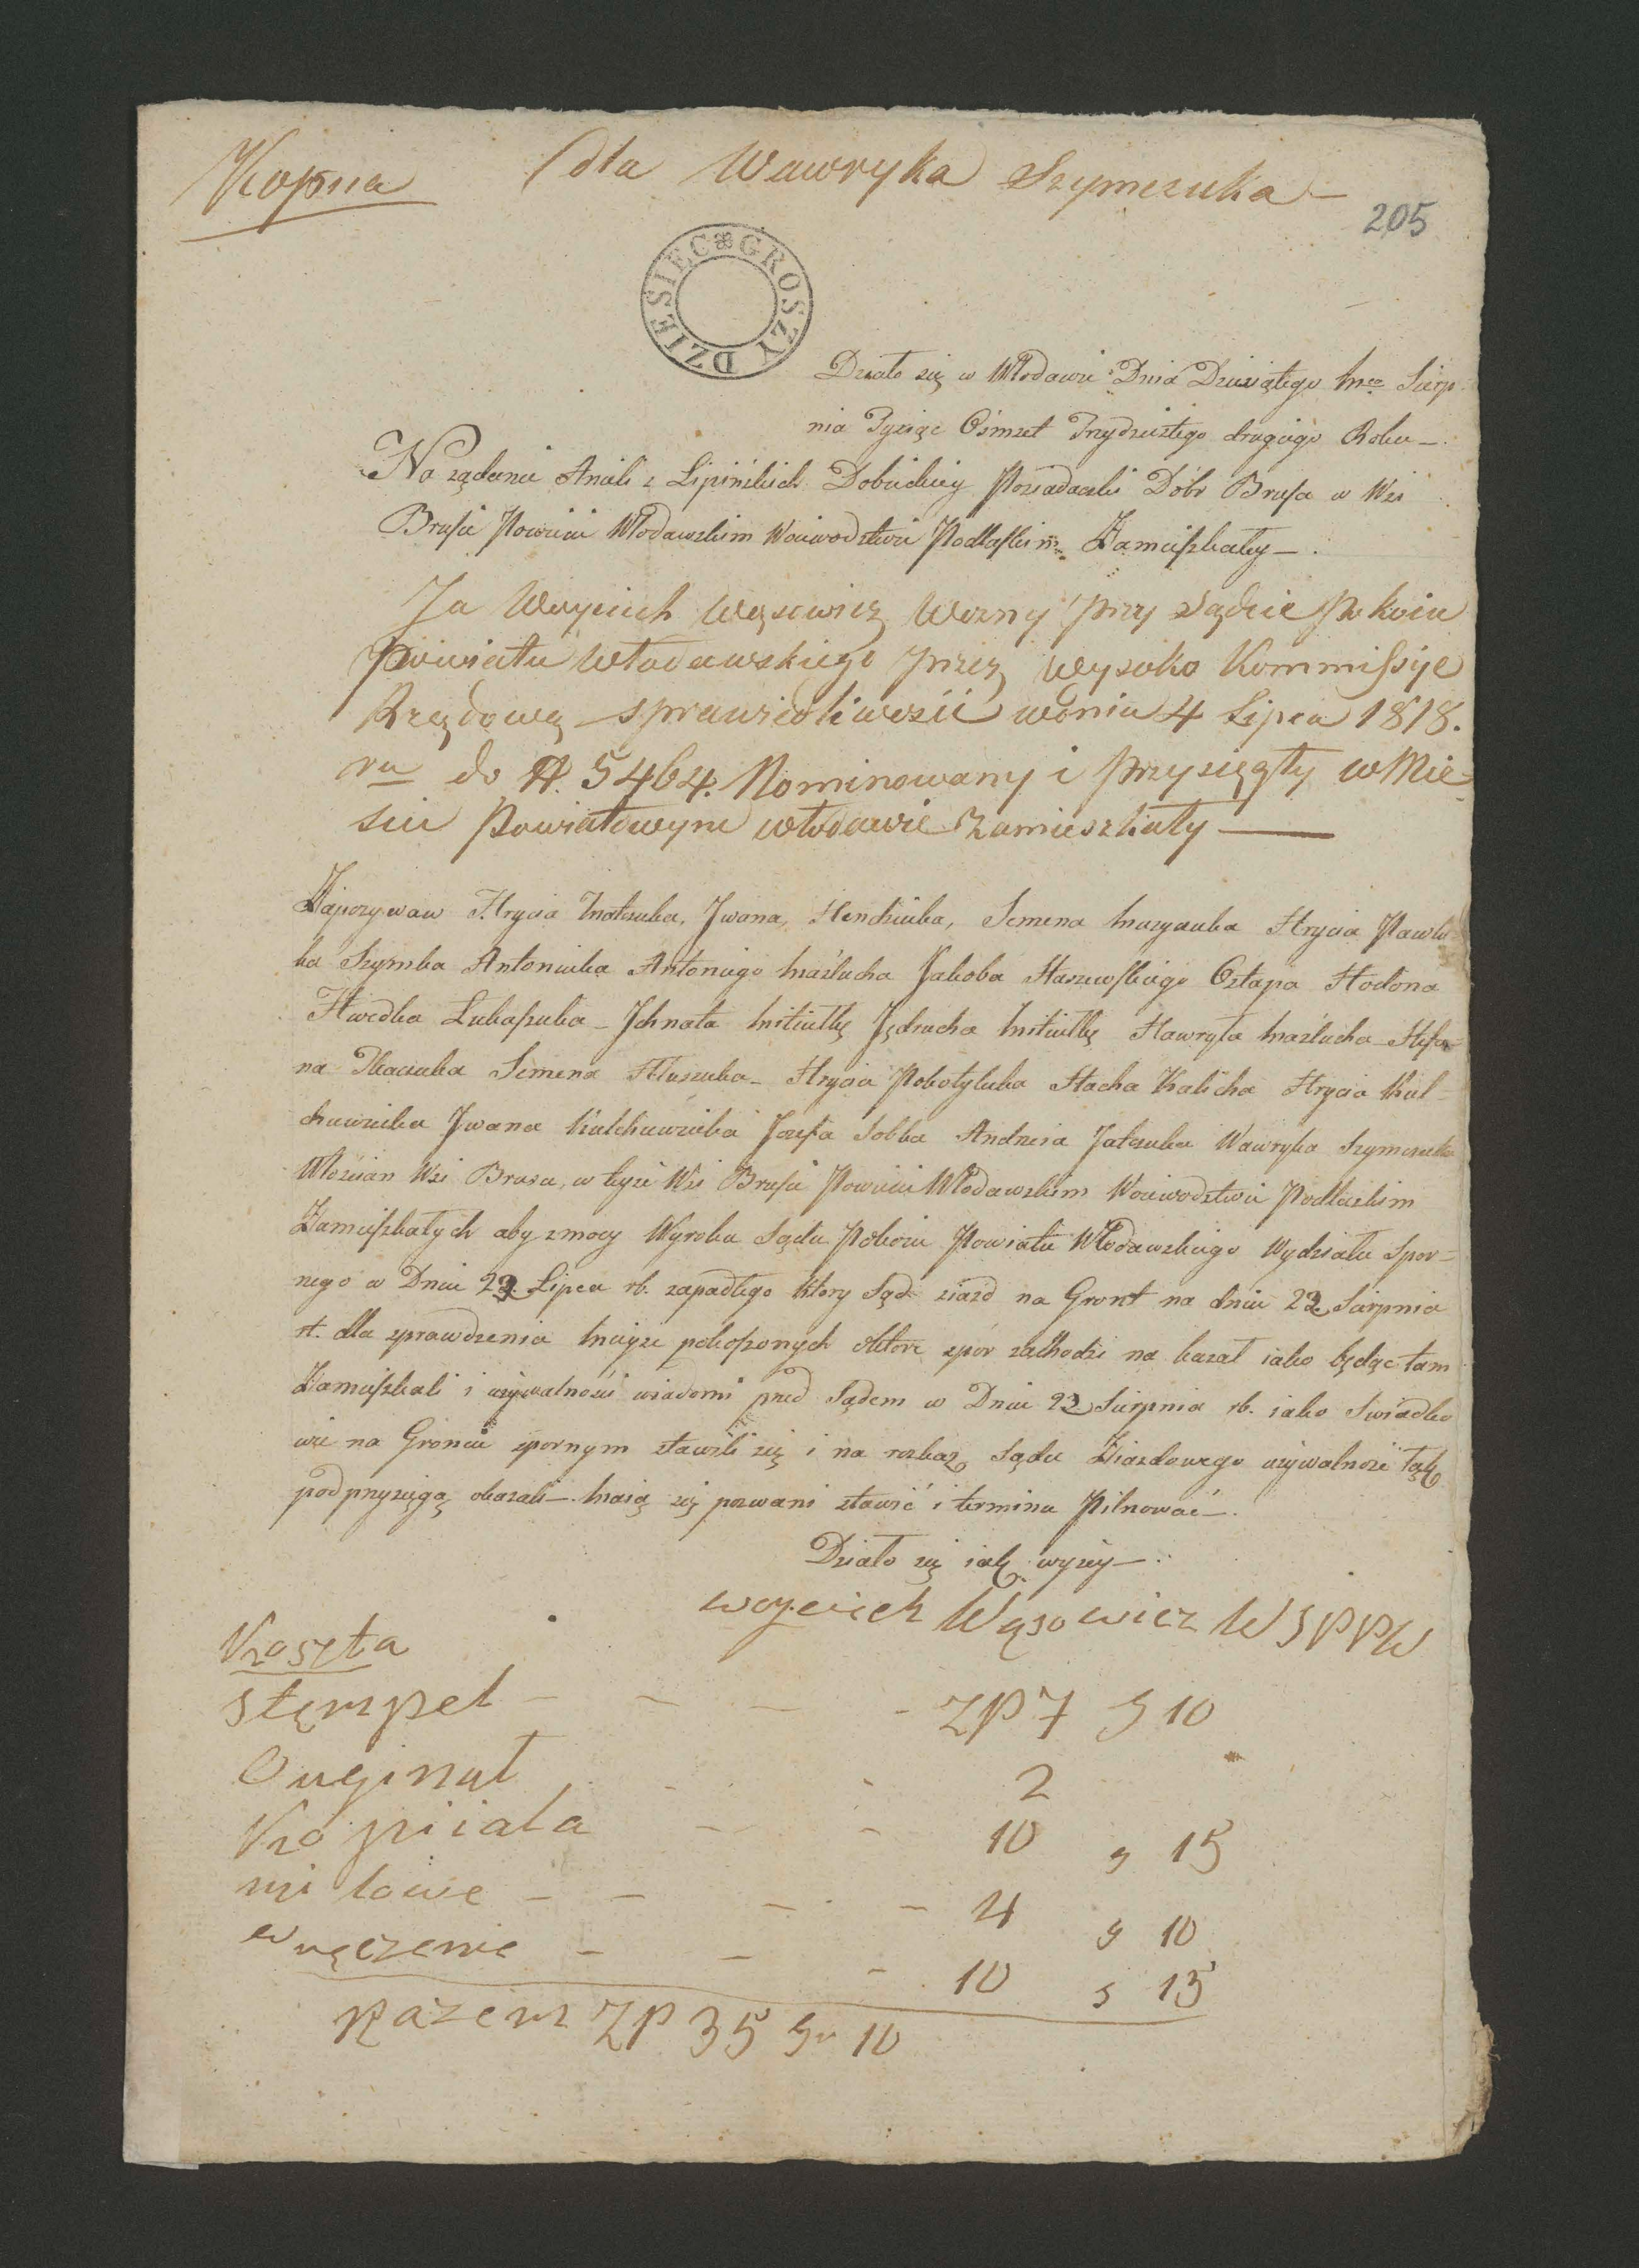 Kopiia dla Wawryka Szymczuka
205
DZIESIĘC GROSZY
Działo się w Włodawie Dnia Dziesiątego Mca Sierp-
nia Tysiąc Ośmset Trzydziestego drugiego Roku
Na ządanie Anieli z Lipińskich Dobieckiey Posiadaczki Dóbr Brusa w Wsi
Brusie Powiecie Włodawskim Woiewodztwie Podlaskim Zamieszkałey
Ja Woyciech Węsowicz Wozny przy Sądzie Pokoiu
Powiatu Włodawskiego przez Wysoko Kommissye
Rzędowę sprawiedliwości w dniu 4 Lipca 1818.
ru do N. 5464. Nominowany i przysięgły w Mie-
scie Powiatowym Włodawie zamieszkały
Zapozywam Hrycia Iwana, Semena Hrycia Pawlu-
ka Szymka Antoniuka Antoniego Maźlucha Jakoba Staszewskiego Ostapa Hodona
Hwedka Łukaszuka Ichnata Mitiutkę Jędrucha Mitiutkę Hawryła Maźlucha Stefa-
na Tkaczuka Semena Hrycia Stacha Kalicha Hrycia Kul-
Iwana Jozefa Sobka Andrzeia Wawryka Szymczuka
Włoscian Wsi Brusa, w teyze Wsi Brusie Powiecie Włodawskim Woiewodztwie Podlaskim
Zamieszkałych aby z mocy Wyroku Sądu Pokoiu Powiatu Włodawskiego Wydziału Spor-
nego w Dniu 23 Lipca rb. zapadłego ktory Sąd ziazd na Gront na dniu 23 Sierpnia
rt. dla sprawdzenia mieysc pokoszonych o ktore spór zachodzi na kazał iako będąc tam
Zamieszkali i uzywalności wiadomi przed Sądem w Dniu 23 Sierpnia rb. iako Swiadko
wie na Groncie spornym stawili się i na rozkaz Sądu Ziazdowego uzywalność tak
pod przysięgą okazali maią się pozwani stawić i terminu Pilnować
Działo się iak wyzey
Woyciech Wąsowicz W S P P W
Koszta
Stempel ZP 7 g 10
Oryginał 2
Kopiiała 10 g 15
milowe 4 g 10
wręczenie 10 g 15
Razem ZP 35 Gr 10